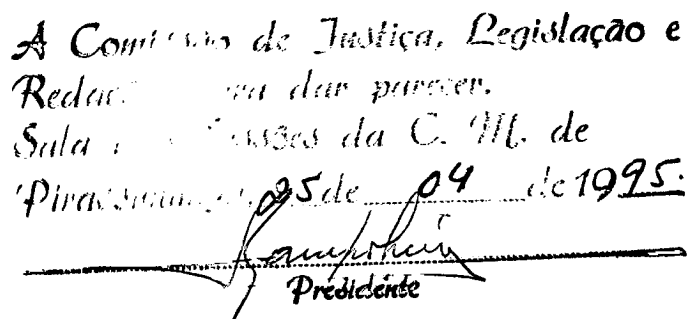 A Comissão de Justiça, Legislação e
Redação para dar parecer.
Sala das Sessões da C. M. de
Pirassununga, 05 de 04 de 1995.
Presidente